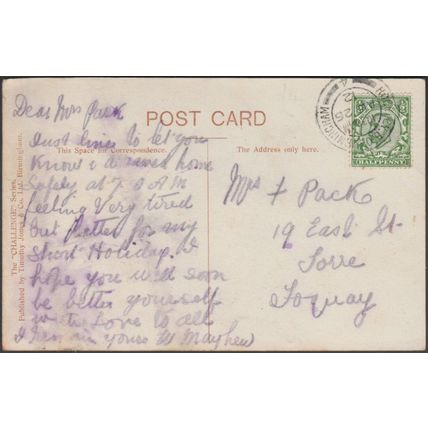 Dear Mrs Pack
POST CARD
Just lines to let you
This Space for Correspondence.
The Address only here.
Know i arrived home
safely at 7.0 AM
feeling Very tired
but better for my
short Holiday. I
hope you will soon
be better yourself
with Love to all
I remain yours M Mayhew
Mrs F Pack
19 East St
Torre
Toquay
HALFPENNY
The "CHALLENGE" Series.
Published by Timothy Jones & Co., Ltd. Birmingham.